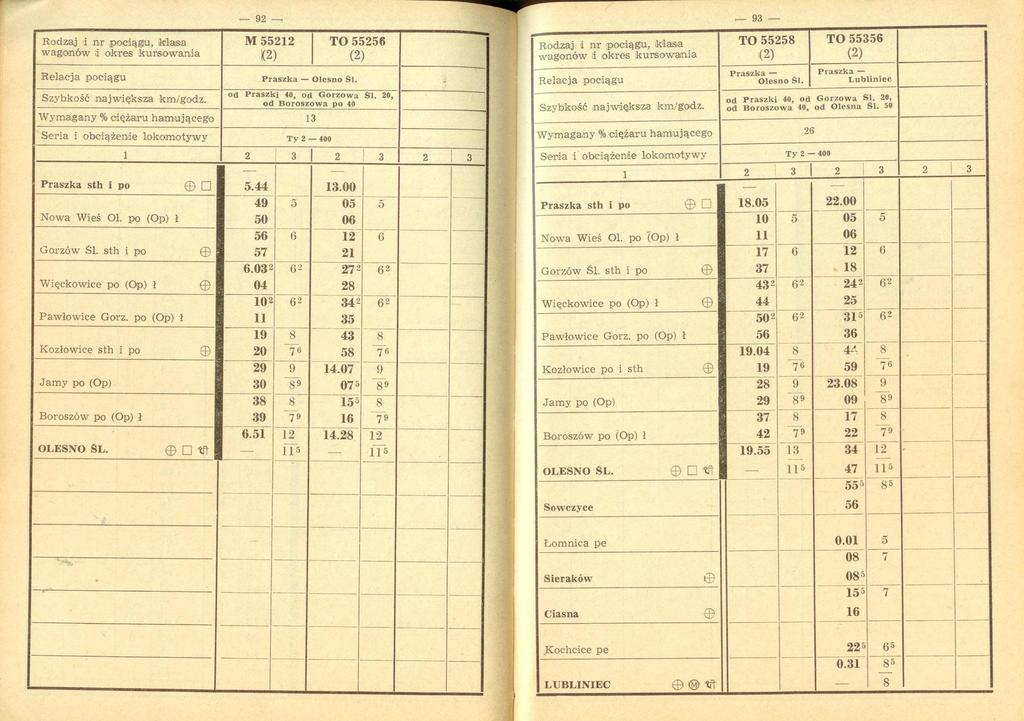 — 92 —
Rodzaj i nr pociągu, klasa wagonów i okres kursowania | M 55212 (2) | TO 55256 (2)
Relacja pociągu | Praszka — Olesno Śl.
Szybkość największa km/godz. | od Praszki 40, od Gorzowa Śl. 20, od Boroszowa po 40
Wymagany % ciężaru hamującego | 13
Seria i obciążenie lokomotywy | Ty 2 — 400
1 | 2 | 3 | 2 | 3 | 2 | 3
— —
Praszka sth i po ⊕ □ 5.44 13.00
49 5 05 5
Nowa Wieś Ol. po (Op) ł 50 06
56 6 12 6
Gorzów Śl. sth i po ⊕ 57 21
6.03² 6² 27² 6²
Więckowice po (Op) ł ⊕ 04 28
10² 6² 34² 6²
Pawłowice Gorz. po (Op) ł 11 35
19 8 43 8
Kozłowice sth i po ⊕ 20 7⁶ 58 7⁶
29 9 14.07 9
Jamy po (Op) 30 8⁹ 07⁵ 8⁹
38 8 15⁵ 8
Boroszów po (Op) ł 39 7⁹ 16 7⁹
6.51 12 14.28 12
OLESNO ŚL. ⊕ □ — 11⁵ — 11⁵
— 93 —
Rodzaj i nr pociągu, klasa wagonów i okres kursowania | TO 55258 (2) | TO 55356 (2)
Relacja pociągu | Praszka — Olesno Śl. | Praszka — Lubliniec
Szybkość największa km/godz. | od Praszki 40, od Gorzowa Śl. 20, od Boroszowa 40, od Olesna Śl. 50
Wymagany % ciężaru hamującego | 26
Seria i obciążenie lokomotywy | Ty 2 — 400
1 | 2 | 3 | 2 | 3 | 2 | 3
— —
Praszka sth i po ⊕ □ 18.05 22.00
10 5 05 5
Nowa Wieś Ol. po (Op) ł 11 06
17 6 12 6
Gorzów Śl. sth i po ⊕ 37 18
43² 6² 24² 6²
Więckowice po (Op) ł ⊕ 44 25
50² 6² 31⁵ 6²
Pawłowice Gorz. po (Op) ł 56 36
19.04 8 44 8
Kozłowice po i sth ⊕ 19 7⁶ 59 7⁶
28 9 23.08 9
Jamy po (Op) 29 8⁹ 09 8⁹
37 8 17 8
Boroszów po (Op) ł 42 7⁹ 22 7⁹
19.55 13 34 12
OLESNO ŚL. ⊕ □ — 11⁵ 47 11⁵
55⁵ 8⁵
Sowczyce 56
Łomnica pe 0.01 5
08 7
Sieraków ⊕ 08⁵
15⁵ 7
Ciasna ⊕ 16
Kochcice pe 22⁵ 6⁵
0.31 8⁵
LUBLINIEC ⊕ Ⓜ — 8